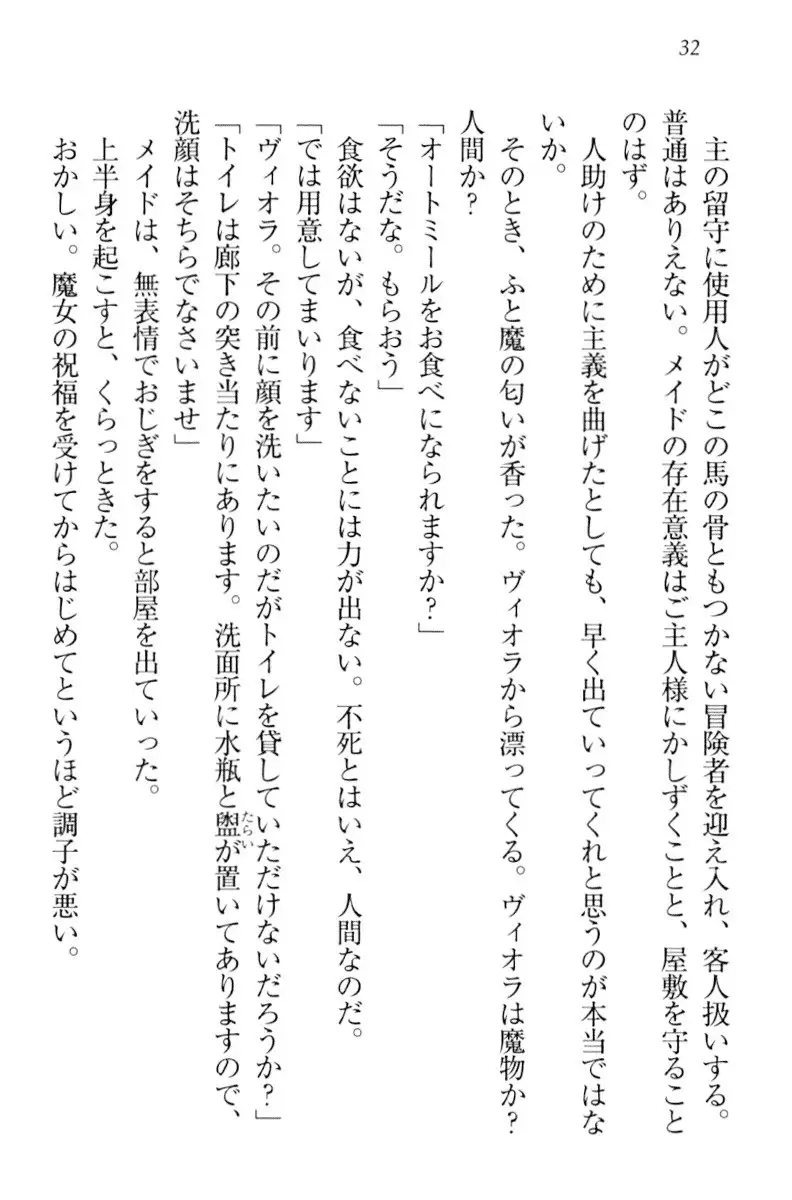 32
主の留守に使用人がどこの馬の骨ともつかない冒険者を迎え入れ、客人扱いする。
普通はありえない。メイドの存在意義はご主人様にかしずくことと、屋敷を守ること
のはず。
人助けのために主義を曲げたとしても、早く出ていってくれと思うのが本当ではな
いか。
そのとき、ふと魔の匂いが香った。ヴィオラから漂ってくる。ヴィオラは魔物か?
人間か?
「オートミールをお食べになられますか?」
「そうだな。もらおう」
食欲はないが、食べないことには力が出ない。不死とはいえ、人間なのだ。
「では用意してまいります」
「ヴィオラ。その前に顔を洗いたいのだがトイレを貸していただけないだろうか?」
「トイレは廊下の突き当たりにあります。洗面所に水瓶と盥たらいが置いてありますので、
洗顔はそちらでなさいませ」
メイドは、無表情でおじぎをすると部屋を出ていった。
上半身を起こすと、くらっときた。
おかしい。魔女の祝福を受けてからはじめてというほど調子が悪い。